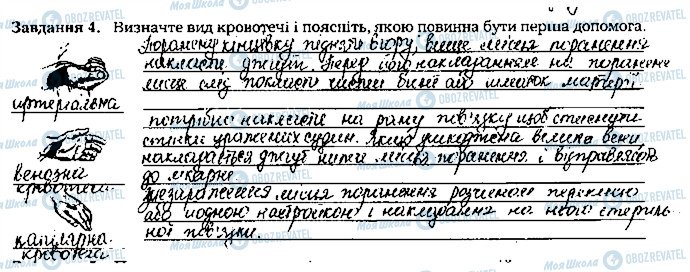 Завдання 4. Визначте вид кровотечі і поясніть, якою повинна бути перша допомога.
Поранену кінцівку підняти вгору, вище місця поранення
накласти джгут. Перед його накладанням на поранене
місце слід покласти чистий бинт або шматок матерії
артеріальна
потрібно накласти на рану пов'язку щоб стиснути
стінки уражених судин. Якщо ушкоджена велика вена
накладається джгут нижче місця поранення і відправляють
венозна
кровотеча
до лікарні.
знезараження місця поранення розчином перекису
або йодною настойкою і накладання на нього стериль
капілярна
ної пов'язки.
кровотеча